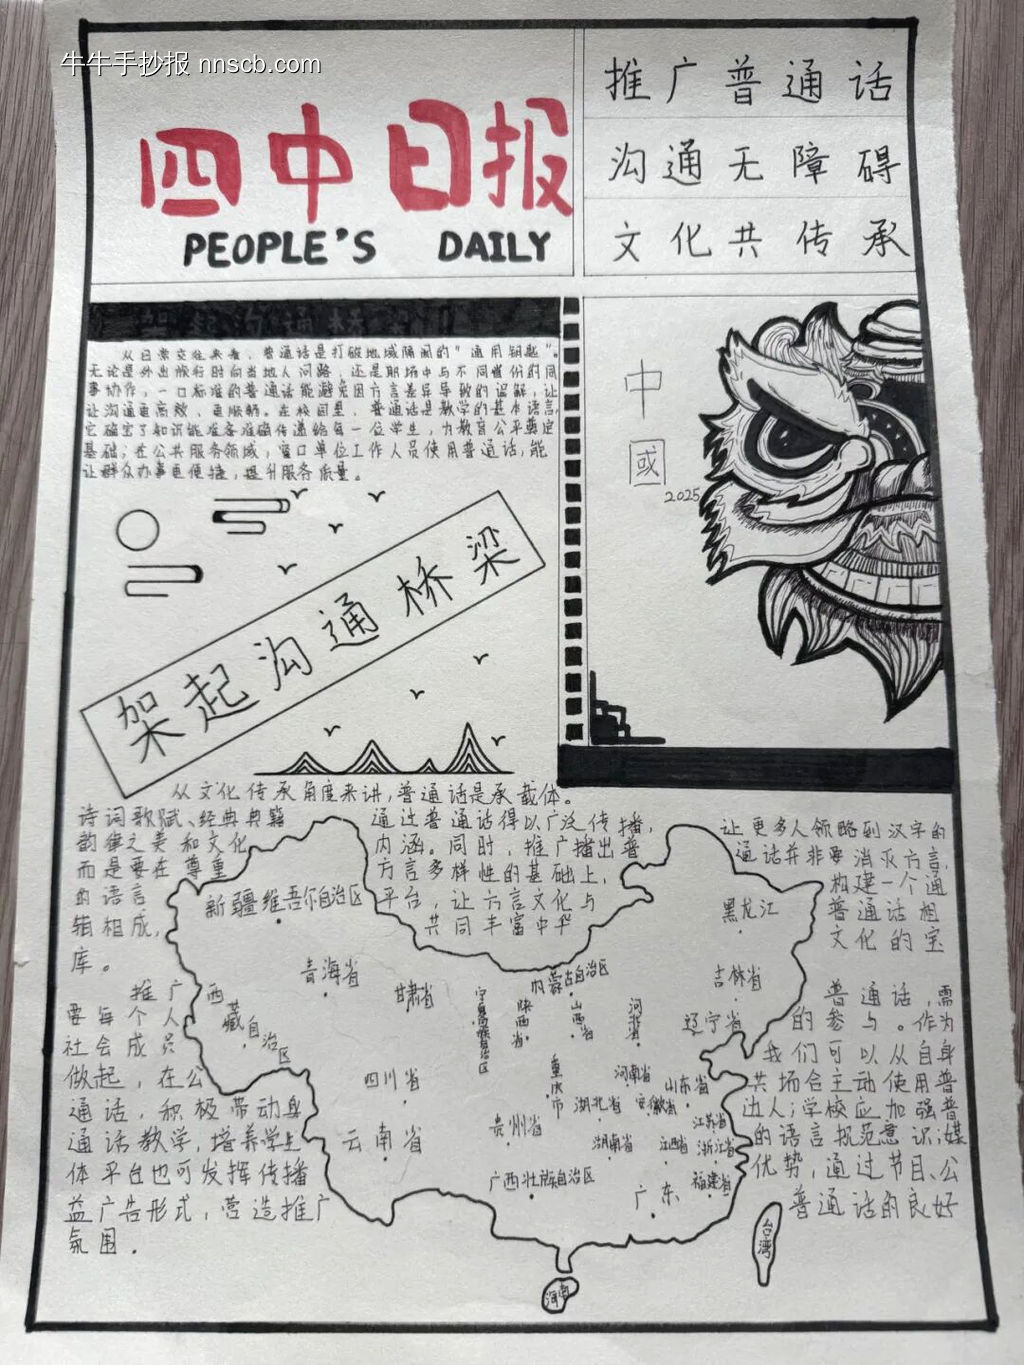 牛牛手抄报 nnscb.com
四中日报
PEOPLE'S DAILY
推广普通话
沟通无障碍
文化共传承
架起沟通桥梁
从日常交往来看，普通话是打破地域隔阂的"通用钥匙"。
无论是外出旅行时向当地人问路，还是职场中与不同省份的同
事协作，一口标准的普通话能避免因方言差异导致的误解，让
让沟通更高效、更顺畅。在校园里，普通话是教学的基本语言，
它确定了知识能准备准确传递给每一位学生，为教育公平奠定
基础；在公共服务领域，窗口单位工作人员使用普通话，能
让群众办事更便捷，提升服务质量。
中
國
2025
架起沟通桥梁
从文化传承角度来讲，普通话是承载体。
诗词歌赋、经典典籍 通过普通话得以广泛传播， 让更多人领略到汉字的
韵律之美和文化 内涵。同时，推广播出普 通话并非要消灭方言，
而是要在尊重 方言多样性的基础上， 构建一个通
的语言 平台，让方言文化与 普通话相
辅相成， 共同丰富中华 文化的宝
库。
推广 普通话，需
要每个人 的参与。作为
社会成员 我们可以从自身
做起，在公 共场合主动使用普
通话，积极带动身 边人；学校应加强普
通话教学，培养学生 的语言规范意识；媒
体平台也可发挥传播 优势，通过节目、公
益广告形式，营造推广 普通话的良好
氛围.
新疆维吾尔自治区
黑龙江
青海省
甘肃省
内蒙古自治区
吉林省
西藏自治区
宁夏回族自治区
陕西省
山西省
河北省
辽宁省
四川省
重庆市
河南省
山东省
湖北省
安徽省
江苏省
贵州省
云南省
湖南省
江西省
浙江省
广西壮族自治区
福建省
广东
台湾
海南